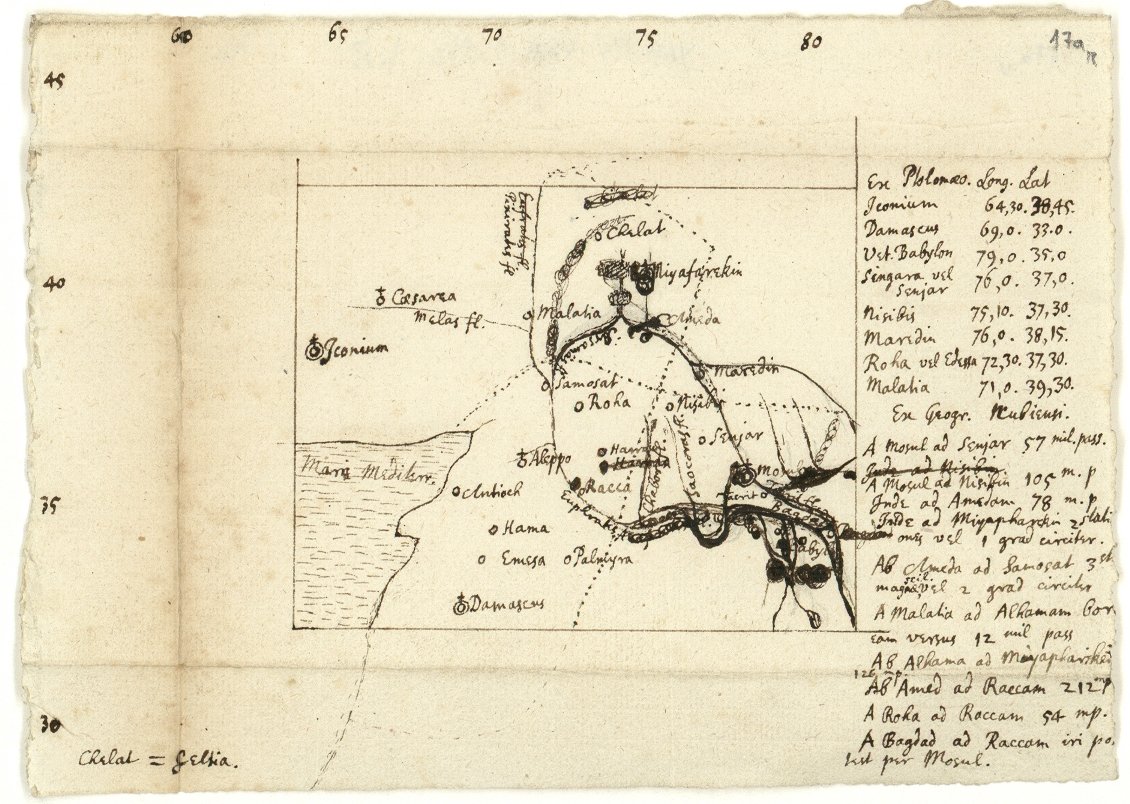 60 65 70 75 80
17a
45
40
35
30
Euphratis fl
Chelat
Miyafarekin
Cæsarea
Melas fl.
Malatia
Ameda
Iconium
Maredin
Samosat
Roha
Nisibis
Senjar
Mare Mediterr.
Aleppo
Harran
Chabor fl.
Saocoras fl.
Mosul
Antioch
Racca
Tecrit
Bagdad
Euphrates
Hama
Emesa
Palmyra
Damascus
Chelat = Gelsia.
Ex Ptolomæo. Long. Lat
Iconium 64,30. 38,45.
Damascus 69,0. 33.0.
Vet. Babylon 79,0. 35,0
Singara vel
Senjar 76,0. 37,0.
Nisibis 75,10. 37,30.
Maredin 76,0. 38,15.
Roha vel Edessa 72,30. 37,30.
Malatia 71,0. 39,30.
Ex Geogr. Nubiensi.
A Mosul ad Senjar 57 mil. pass.
Inde ad Nisibin
A Mosul ad Nisibin 105 m. p
Inde ad Amedam 78 m. p
Inde ad Miyapharekin 2 stati
ones vel 1 grad circiter.
Ab Ameda ad Samosat 3 st
magnæ scil. vel 2 grad circiter
A Malatia ad Alhamam bor
eam versus 12 mil pass
Ab Alhama ad Miyaphareked
126 mp.
Ab Amed ad Raccam 212 mp
A Roha ad Raccam 54 mp.
A Bagdad ad Raccam iri po,
test per Mosul.